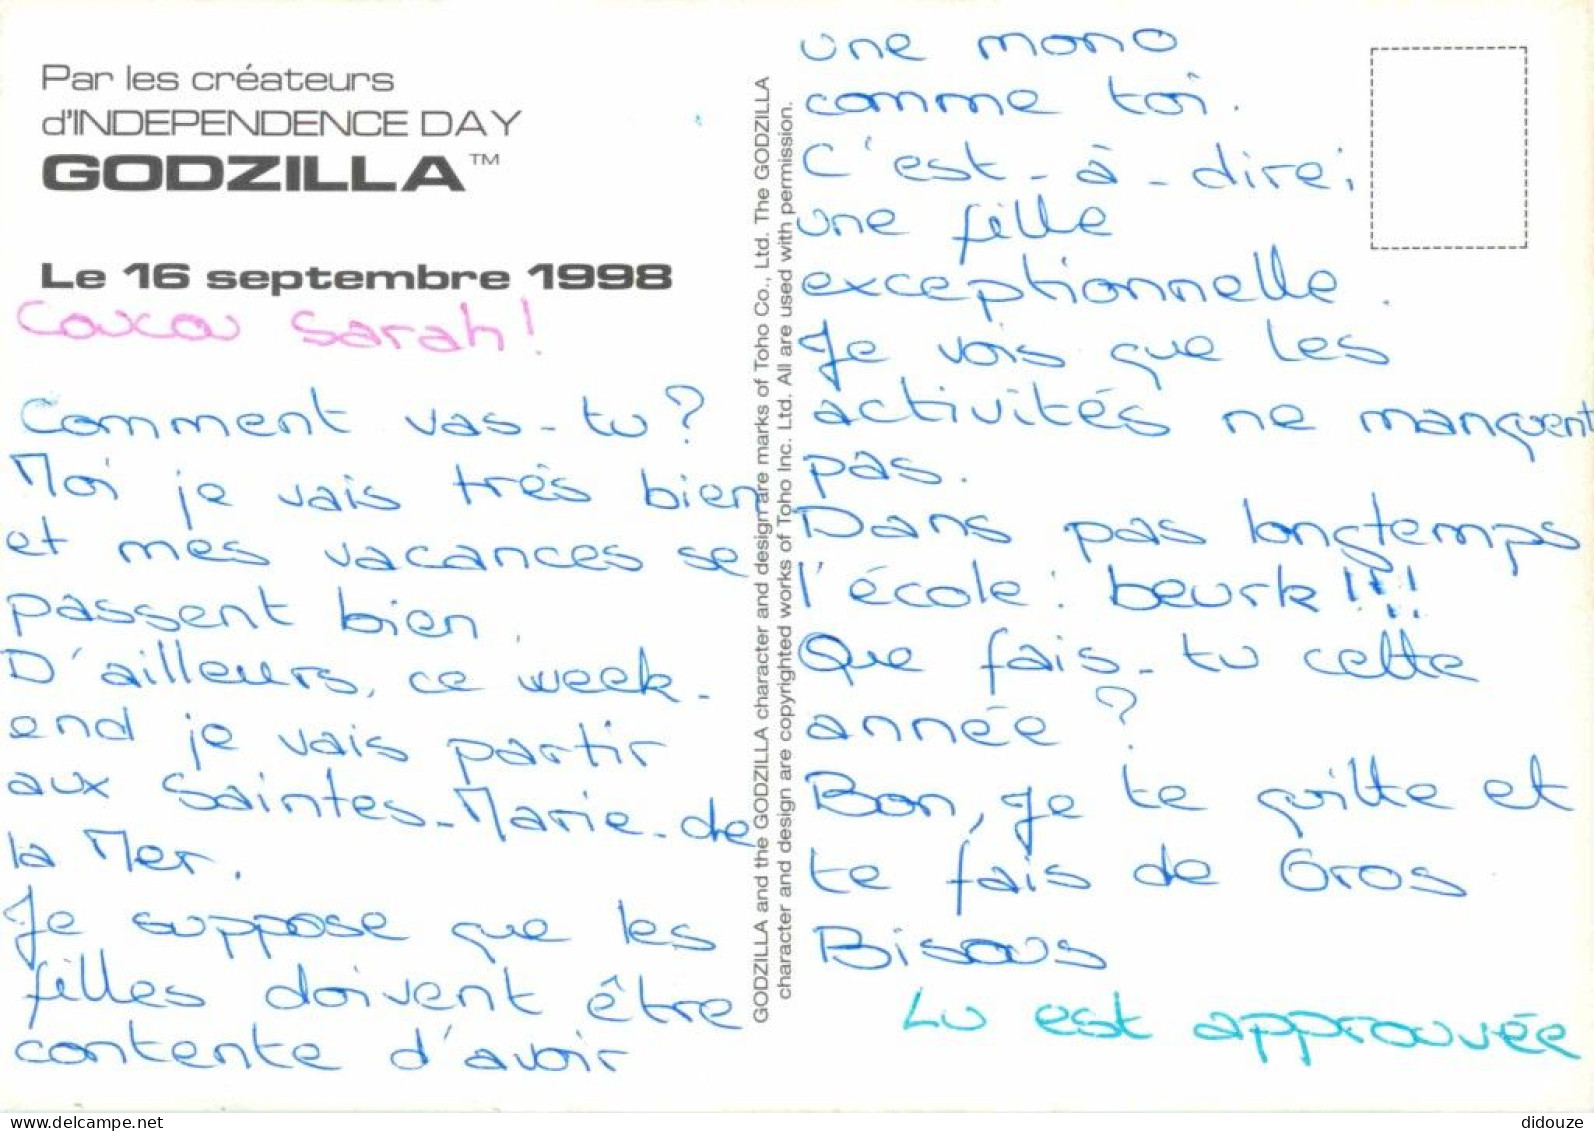 Par les créateurs
d'INDEPENDENCE DAY
GODZILLA™
Le 16 septembre 1998
Coucou Sarah!
Comment vas-tu?
Moi je vais très bien
et mes vacances se
passent bien.
D'ailleurs, ce week-
end je vais partir
aux Saintes-Marie-de
la Mer.
Je suppose que les
filles doivent être
contente d'avoir
GODZILLA and the GODZILLA character and design are marks of Toho Co., Ltd. The GODZILLA
character and design are copyrighted works of Toho Inc. Ltd. All are used with permission.
une mono
comme toi.
C'est-à-dire;
une fille
exceptionnelle.
Je vois que les
activités ne manquent
pas.
Dans pas longtemps
l'école: beurk!!!
Que fais-tu cette
année?
Bon, je te quitte et
te fais de Gros
Bisous
Lu est approuvée
Delcampe.net
didouze